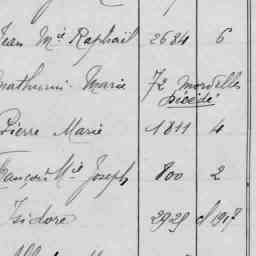 Jean Mie Raphaël 2624 6
Mathurin Marie 72 Mordelles
Décédé
Pierre Marie 1811 4
François Mie Joseph 800 2
Isidore 2929